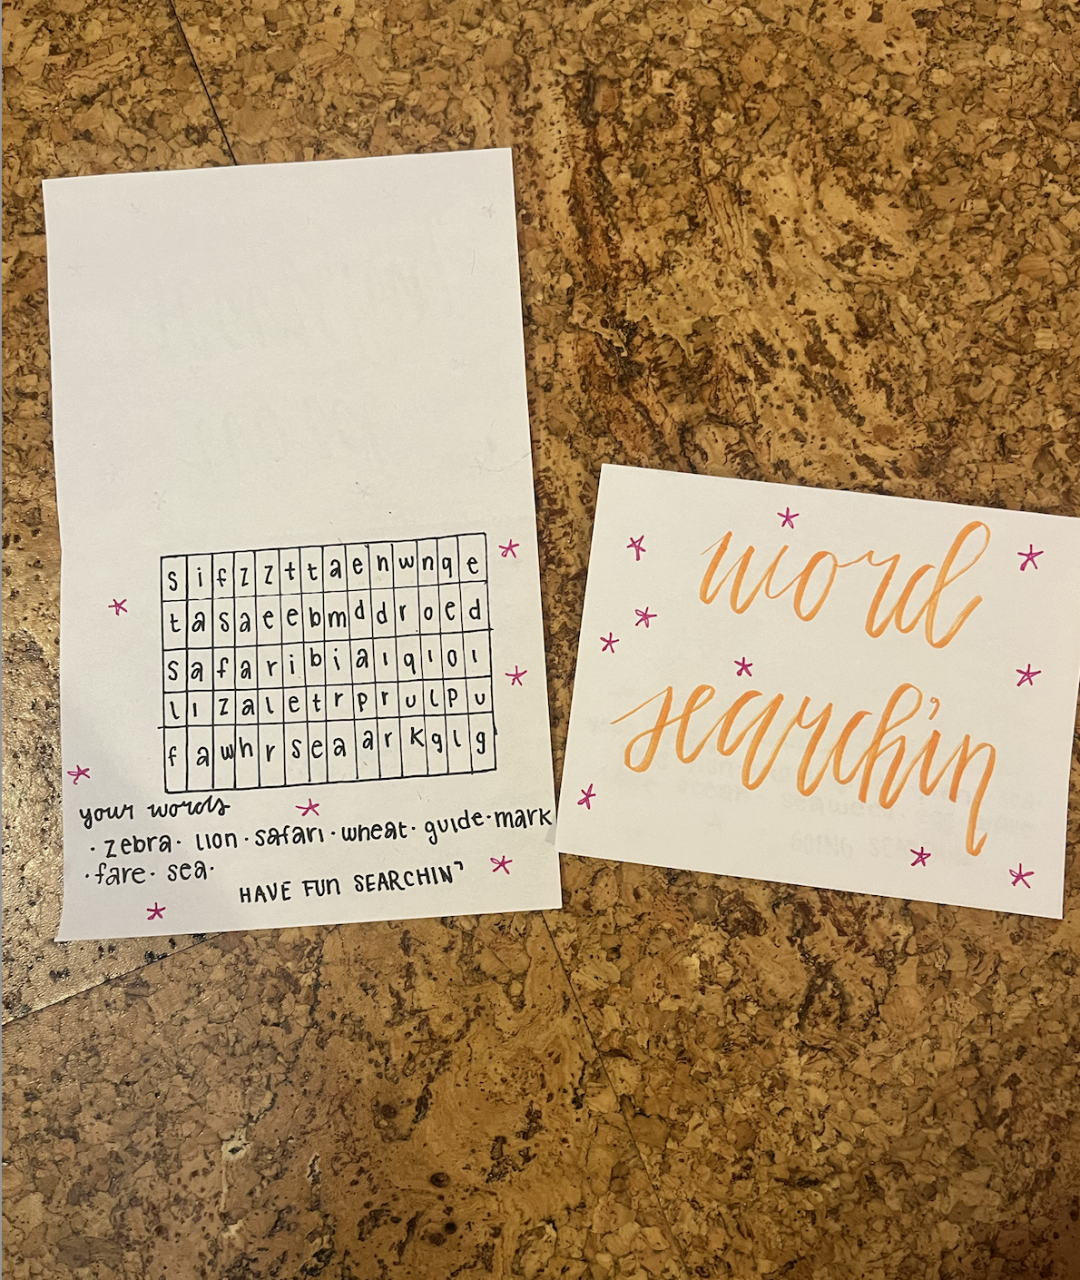 s i f z z t t a e n w n q e
t a s a e e b m d d r o e d
s a f a r i b i a i q i o i
l i z a l e t r p r u l p u
f a w h r s e a a r k g l g
your words
· zebra · lion · safari · wheat · guide · mark
· fare · sea ·
HAVE FUN SEARCHIN'
word
searchin